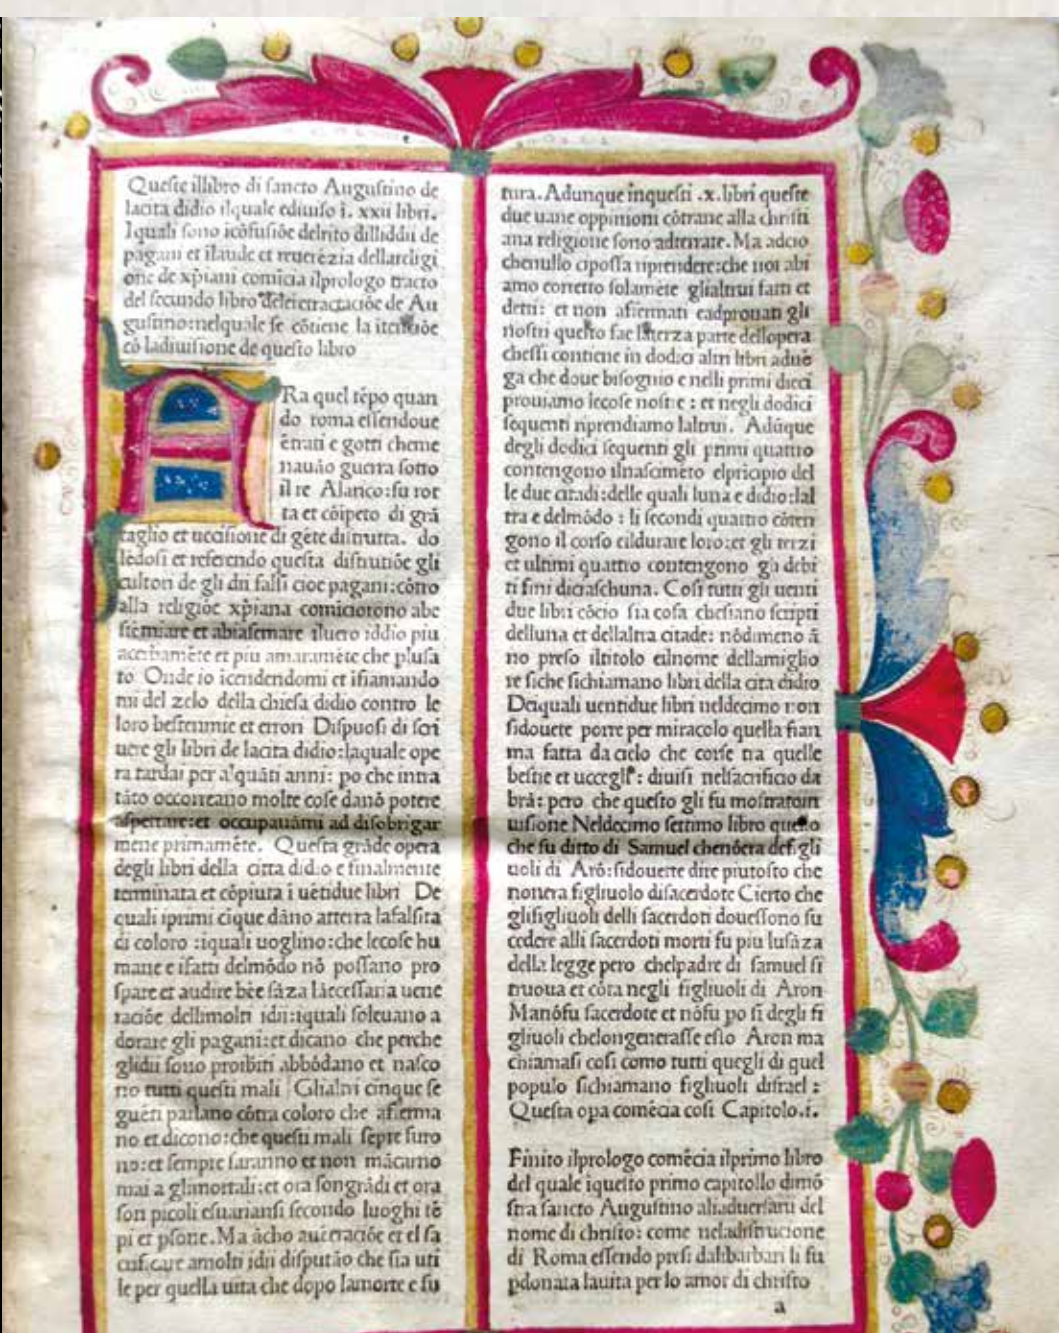 Queſte illibro di ſancto Auguſtino de
lacita didio ilquale ediuiſo ī. xxii libri.
Iquali ſono icōfuſiōe delrito dilliddii de
pagani et ilaude et reuerēzia dellareligi
one de xp̄iani comīcia ilprologo tracto
del ſecundo libro delretractaciōe de Au
guſtino:nelquale ſe cōtiene la itētiōe
cō ladiuiſione de queſto libro
Ra quel tēpo quan
do roma eſſendoue
ētrati e gotti cheme
nauāo guerra ſotto
il re Alarico:fu rot
ta et cōipeto di grā
taglio et ucciſione di gēte diſtrutta. do
lēdoſi et referendo queſta diſtrutiōe gli
cultori de gli dii falſi cioe pagani:cōtro
alla religiōe xp̄iana comiciorono abe
ſtēmiare et abiaſemare iluero iddio piu
acerbamēte et piu amaramēte che pluſa
to Onde io icendendomi et ifiamando
mi del zelo della chieſa didio contro le
loro beſtemmie et errori Diſpuoſi di ſcri
uere gli libri de lacita didio:laquale ope
ra tardai per alquāti anni: po che intra
tāto occorreano molte coſe danō potere
aſpectare:et occupauāmi ad diſobrigar
mene primamēte. Queſta grāde opera
degli libri della citta didio e finalmente
terminata et cōpiuta ī uētidue libri De
quali iprimi cīque dāno atterra lafalſita
di coloro :iquali uoglino:che lecoſe hu
mane e ifatti delmōdo nō poſſano pro
ſpare et audire bēe ſāza lāceſſaria uene
raciōe dellimolti idii:iquali ſoleuano a
dorare gli pagani:et dicano che perche
glidii ſono proibiti abbōdano et naſco
no tutti queſti mali Ghialtri cinque ſe
guēti parlano cōtra coloro che afferma
no et dicono:che queſti mali ſēpre furo
no:et ſempre ſaranno et non mācarno
mai a glimortali:et ora ſongrādi et ora
ſon picoli eſuarianſi ſecondo luoghi tē
pi et pſone. Ma ācho et el ſa
amolti idii diſputāo che ſia uti
le per quella uita che dopo lamorte e fu
tura. Adunque inqueſti .x. libri queſte
due uane oppinioni cōtrarie alla chriſti
ana religione ſono adterrate. Ma adcio
chenullo cipoſſa riprendere:che noi abi
amo corretto ſolamēte glialtrui fatti et
detti: et non affermati eadprouati gli
noſtri queſto fae laterza parte dellopera
cheſſi contiene in dodici altri libri aduē
ga che doue biſognio e nelli primi dieci
prouiamo lecoſe noſtre : et negli dodici
ſequenti riprendiamo laltrui. Adūque
degli dodici ſequenti gli primi quattro
contengono ilnaſcimēto elprīcipio del
le due citadi:delle quali luna e didio:lal
tra e delmōdo : li ſecondi quattro cōten
gono il corſo eildurare loro:et gli terzi
et ultimi quattro contengono gli debi
ti fini diciaſchuna. Coſi tutti gli uenti
due libri cōcio ſia coſa cheſiano ſcripti
delluna et dellaltra citade: nōdimeno ā
no preſo iltitolo eilnome dellamiglio
re ſiche ſichiamano libri della cita didio
Deiquali uentidue libri neldecimo non
ſidouete porre per miracolo quella fiam
ma fatta dacielo che corſe tra quelle
beſtie et uccegli : diuiſi nelſacrificio da
brā: pero che queſto gli fu moſtratoin
uiſione Neldecimo ſettimo libro queſto
che fu ditto di Samuel chenōera de figli
uoli di Arō:ſidouette dire piutoſto che
nonera figliuolo diſacerdote Cierto che
gliſigliuoli delli ſacerdoti doueſſono ſu
cedere alli ſacerdoti morti fu piu luſāza
della legge pero chelpadre di ſamuel ſi
truoua et cōta negli figliuoli di Aron
Manōfu ſacerdote et nōfu po ſi degli fi
gliuoli chelongeneraſſe eſſo Aron ma
chiamaſi coſi come tutti quegli di quel
populo ſichiamano figliuoli diſrael :
Queſta opa comēcia coſi Capitolo.i.
Finito ilprologo comēcia ilprimo libro
del quale iqueſto primo capitollo dimō
ſtra ſancto Auguſtino aliaduerſarii del
nome di chriſto: come neladiſtrucione
di Roma eſſendo preſi dalibarbari li fu
pdonata lauita per lo amor di chriſto
a